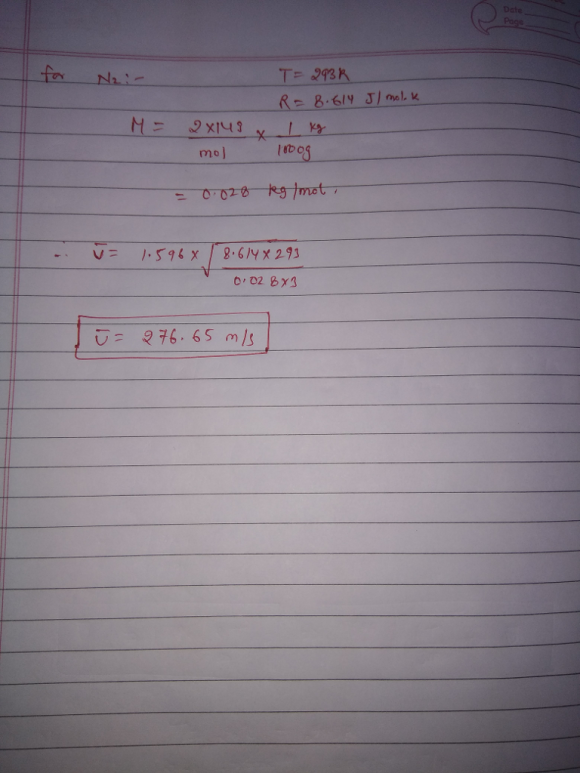 Date
Page
for N₂:- T = 293K
R = 8.614 J/mol.K
M = 2×14g/mol × 1 kg/1000g
= 0.028 kg/mol.
∴ Ū = 1.596 × √(8.614×293/0.028×3)
Ū = 276.65 m/s